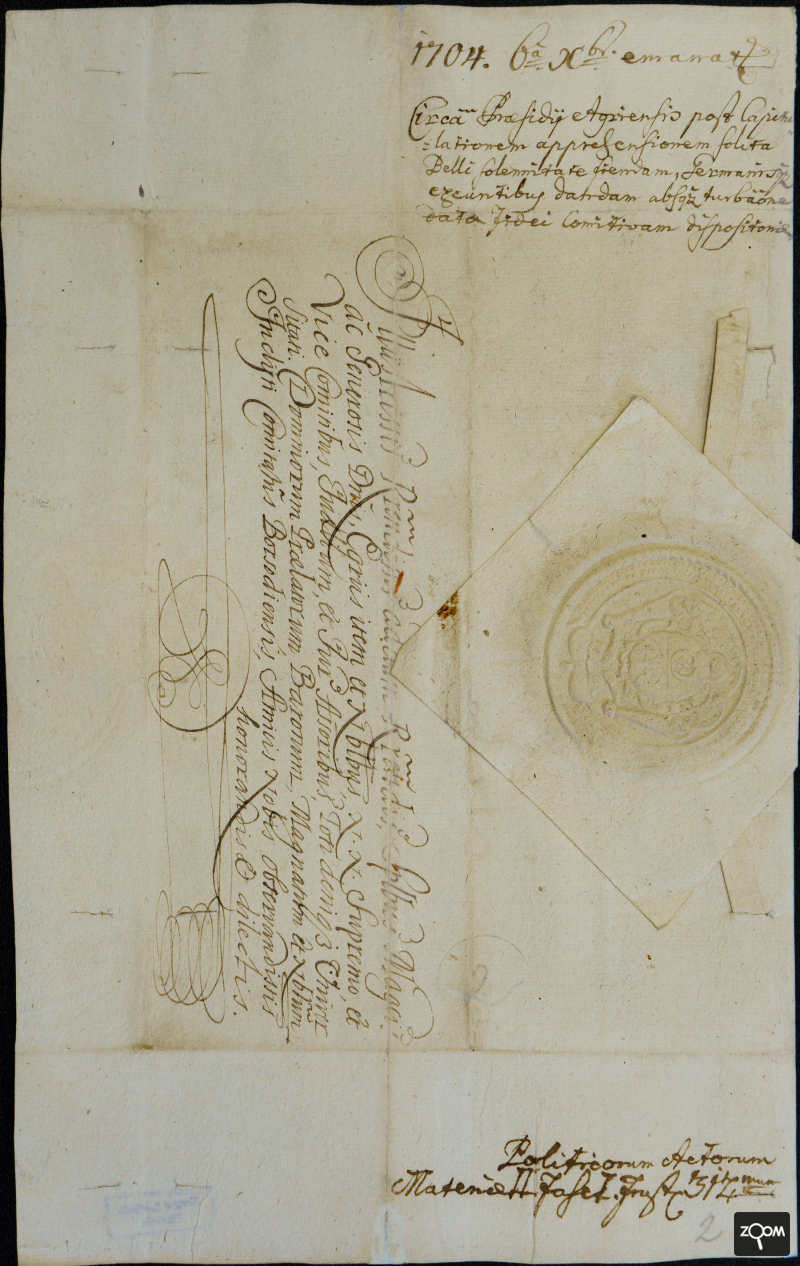 1704. 6ta Xbr. emanat
Circa Præsidij Agriensis post Capitu
=lationem apprehensionem solita
Belli solemnitate fiendam, Germanisqz
exeuntibus dandam absqz turbaõne
datæ fidei Comitivam dispositoriæ
ac Generosis Dnis, Egriis item et Nobilibus, N. N. Supremo, et
Vice Comitibus, Judlium, et Jur Assoribus, Toti deniqz Univer
sitati Dominorum Prælatorum Baronum, Magnatum et Nobilium
Inclyti Comitatus Borsodiensis, Amicis Nobis observandissis
honorandis & dilectis.
Politicorum Actorum
Materiæ II Fasc. I. Frust. 314mum
2
ZOOM